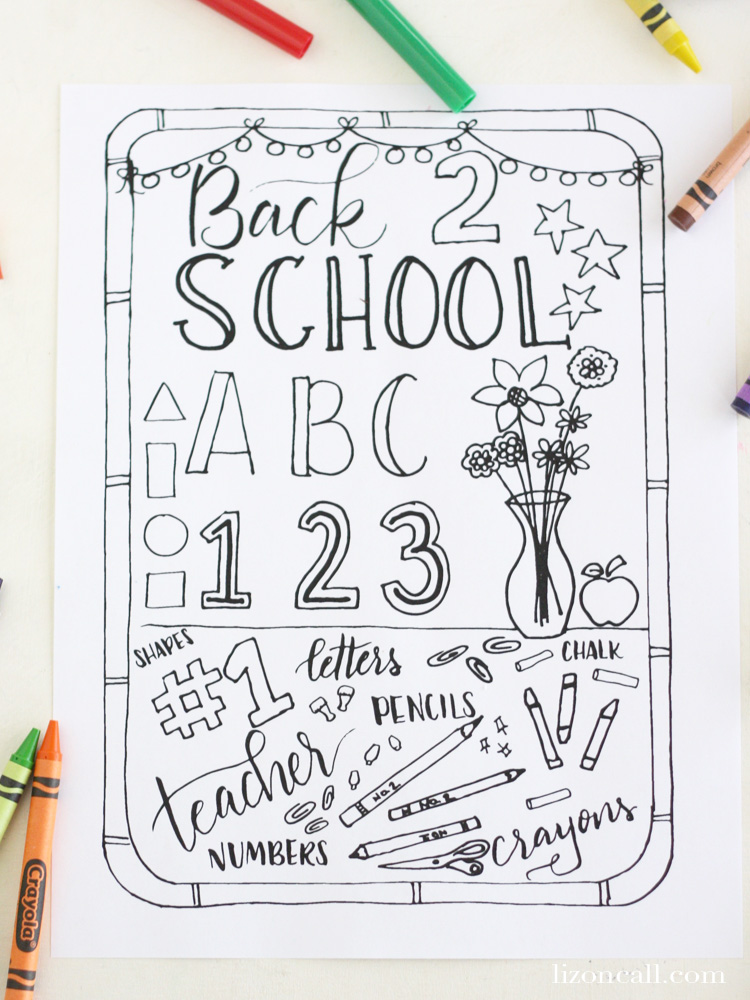 Back 2
SCHOOL
A B C
1 2 3
SHAPES
#1
letters
CHALK
PENCILS
teacher
No. 2
No. 2
NUMBERS
crayons
Crayola
lizoncall.com